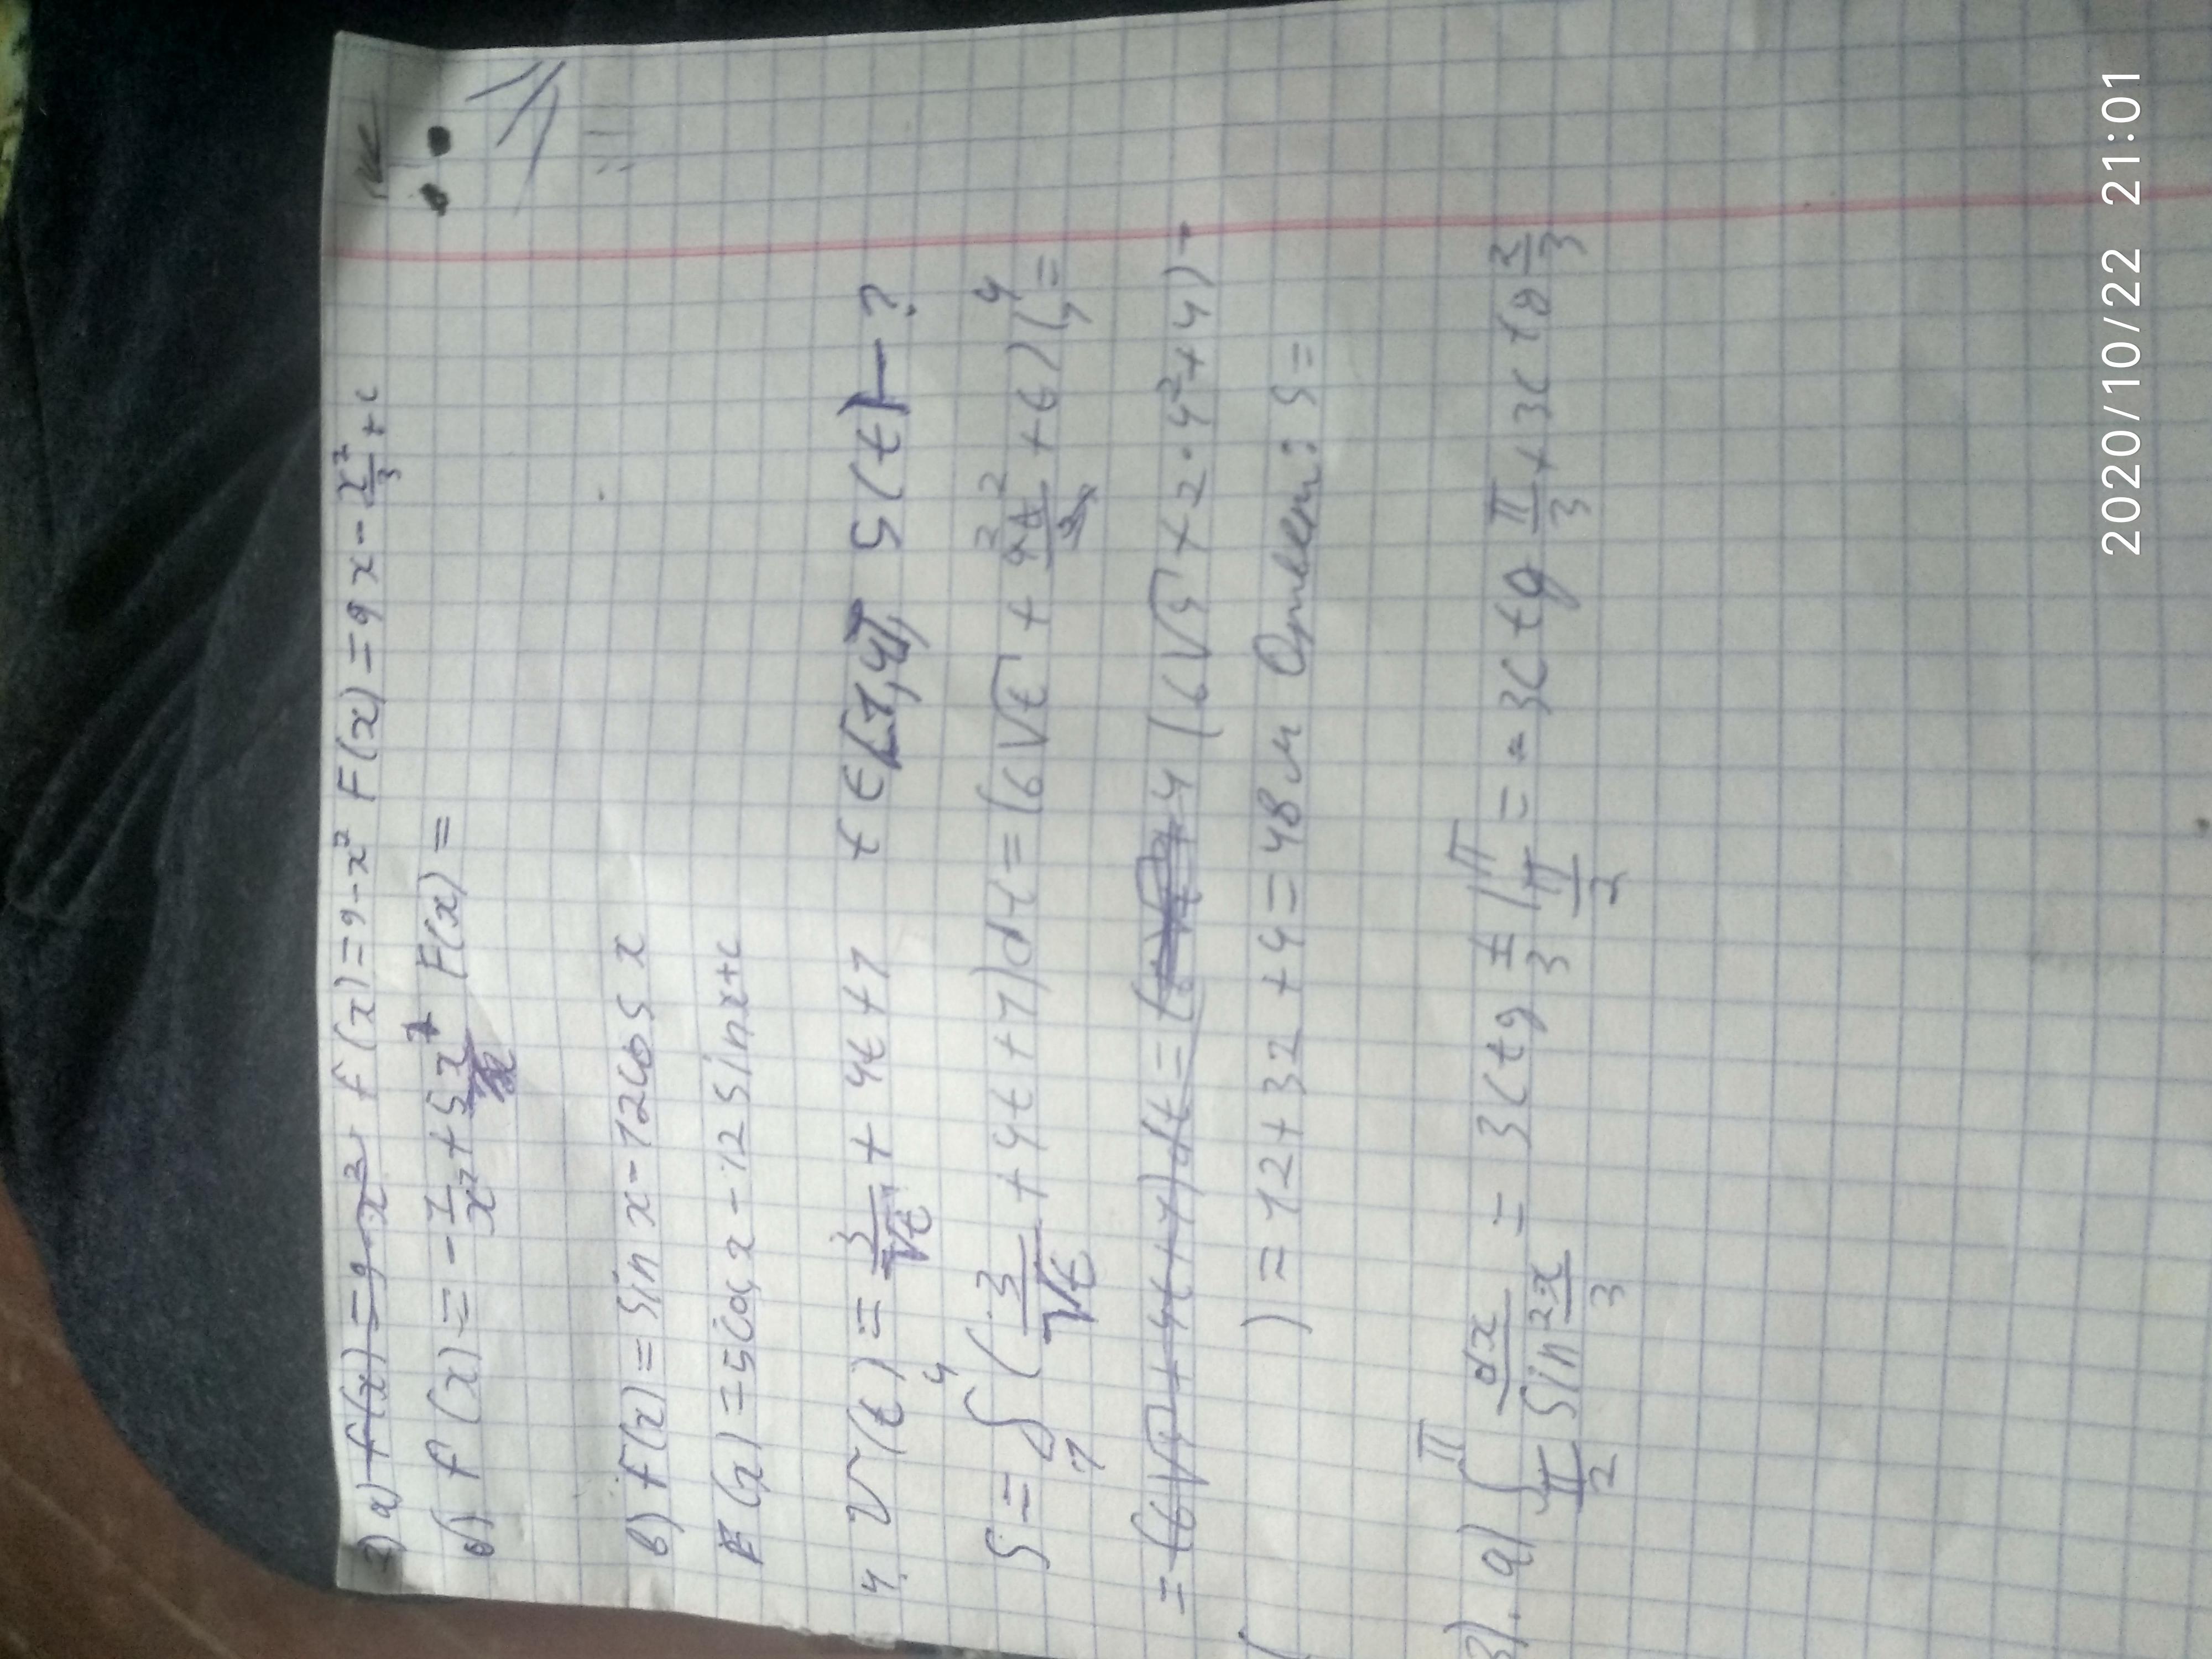 2) а) f(x)=9-x² f(x)=9-x² F(x)=9x-x²/3+c
б) f(x)=-1/x²+5x⁷ F(x)=
в) f(x)=sin x-12cos x
F(x)=5cos x-12sin x+c
4. v(t)=3/√t+4t+1 t∈[1,4], S(t)-?
S=∫₁⁴(3/√t+4t+1)dt=(6√t+4t²/2+6)|₁⁴=
4(6√4+2·4²+4)-
( )=12+32+4=48м Ответ: S=
3). а) ∫_{π/2}^{π} dx/sin² x/3=3ctg x/3|_{π/2}^{π}=-3ctg π/3+3ctg
2020/10/22 21:01